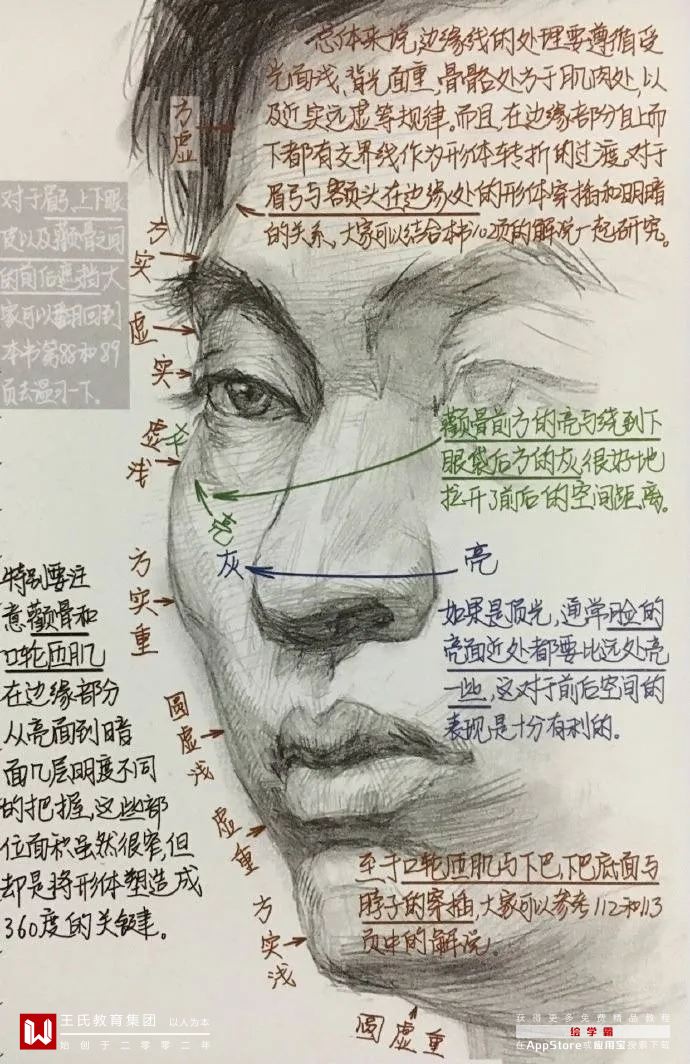 总体来说,边缘线的处理要遵循受
光面浅,背光面重,骨骼处方于肌肉处,以
及近实远虚等规律。而且,在边缘部分自上而
下都有交界线作为形体转折的过渡。对于
眉弓与额头在边缘处的形体穿插和明暗
的关系,大家可以结合本书102页的解说一起研究。
方虚
对于眉弓、上下眼
皮以及颧骨之间
的前后遮挡大
家可以翻回到
本书第88和89
页去温习一下。
方实
虚
实
虚浅
颧骨前方的亮与绕到下
眼袋后方的灰,很好地
拉开了前后的空间距离。
亮
灰
亮
方实重
如果是顶光,通常脸的
亮面近处都要比远处亮
一些,这对于前后空间的
表现是十分有利的。
特别要注
意颧骨和
口轮匝肌
在边缘部分
从亮面到暗
面几层明度不同
的把握,这些部
位面积虽然很窄,但
却是将形体塑造成
360度的关键。
圆虚浅
虚重
方实浅
至于口轮匝肌与下巴、下巴底面与
脖子的穿插,大家可以参考112和113
页中的解说。
圆虚重
王氏教育集团 以人为本
始创于二零零二年
获得更多免费精品教程
绘学霸
在AppStore或应用宝搜索下载